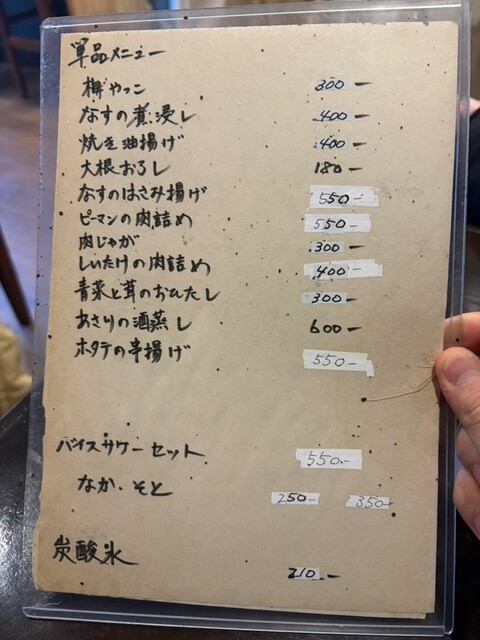 単品メニュー
梅やっこ 300-
なすの煮浸し 400-
焼き油揚げ 400-
大根おろし 180-
なすのはさみ揚げ 550-
ピーマンの肉詰め 550-
肉じゃが 300-
しいたけの肉詰め 400-
青菜と茸のおひたし 300-
あさりの酒蒸し 600-
ホタテの串揚げ 550-
バイスサワーセット 550-
なか・そと 250- 350-
炭酸氷 210-